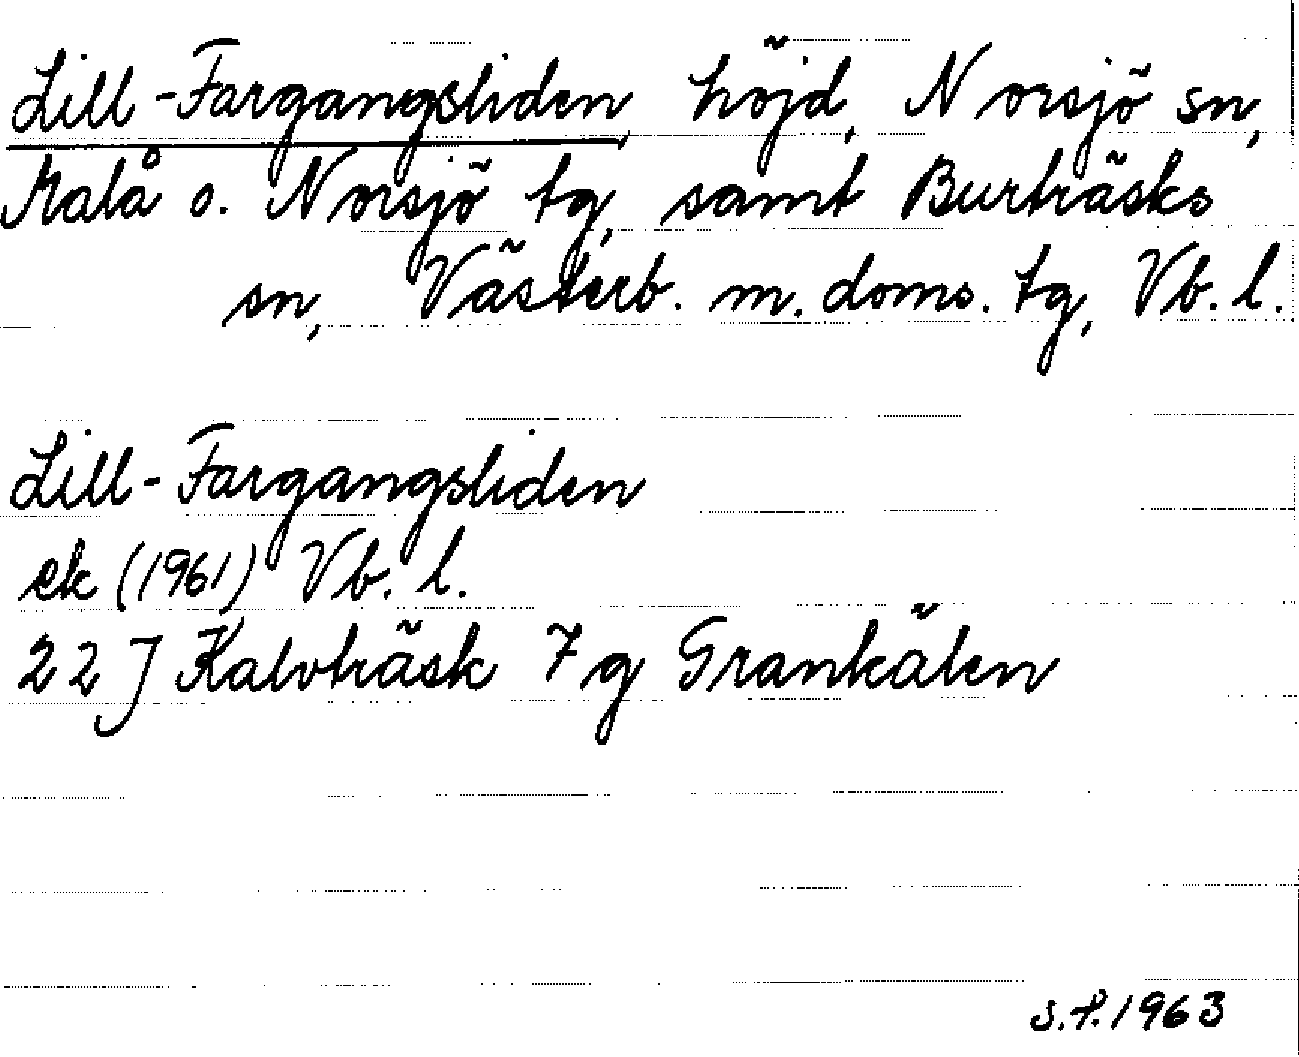 Lill-Fargangsliden, höjd, Norsjö sn,
Malå o. Norsjö tg, samt Burträsks
sn, Västerb. m. doms. tg, Vb. l.
Lill-Fargangsliden
ek (1961) Vb. l.
22 J Kalvträsk 7 g Grankälen
S.P. 1963